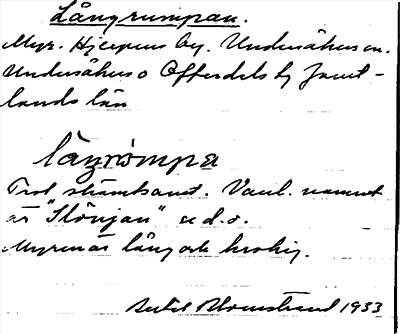 Långrumpan.
Myr. Hjerpens by. Undersåkers sn.
Undersåkers o Offerdals tg Jämt-
lands län
låɳrômpa
Trol. skämtsamt. Vanl. namnet
är "Slöujan" se d.o.
Myren är lång och krokig.
Bertil Blomstrand 1933